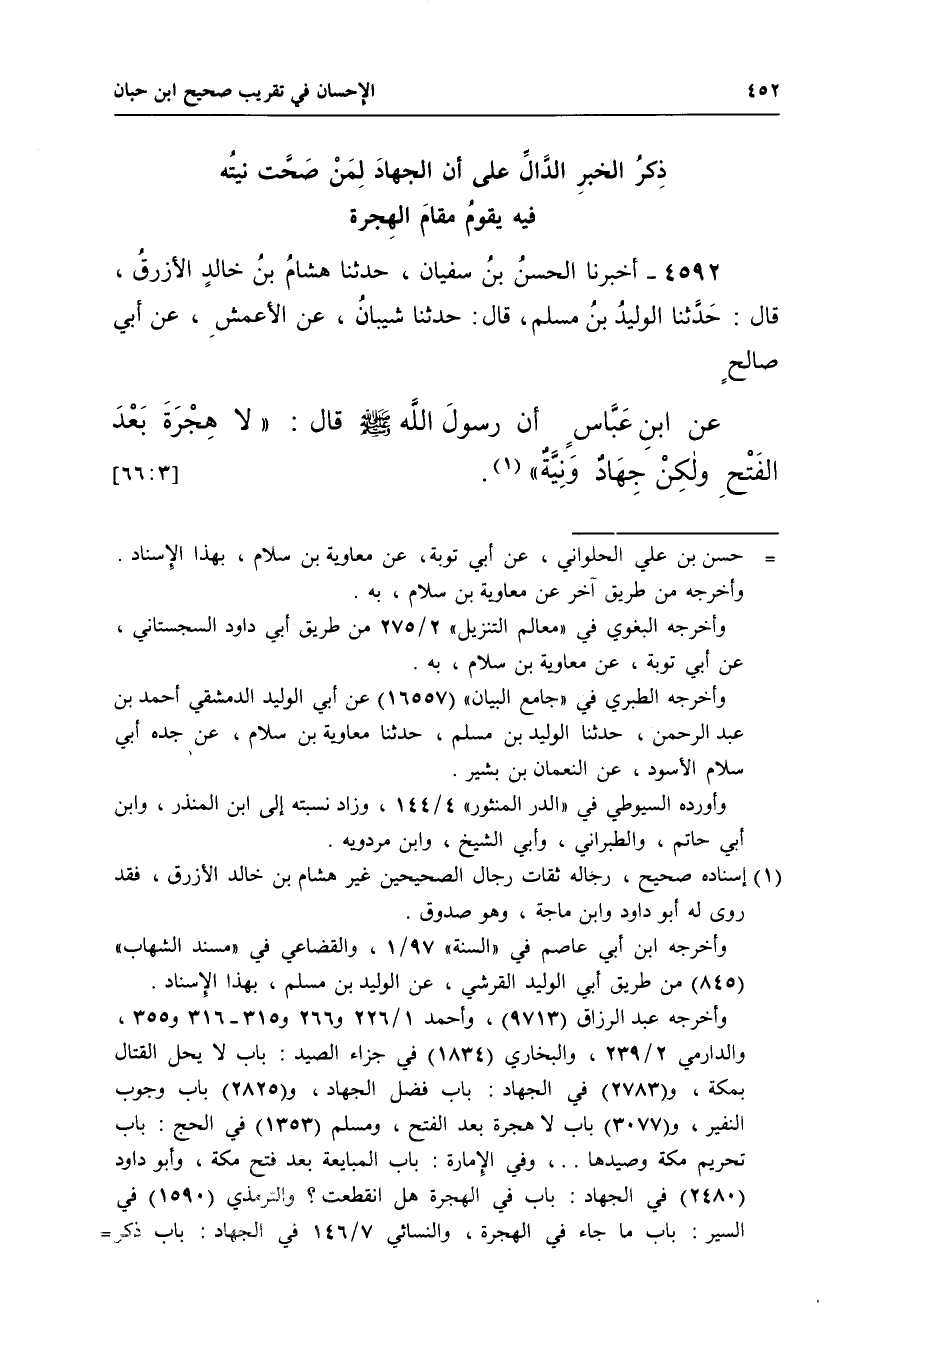 ٤٥٢ الإحسان في تقريب صحيح ابن حبان
ذِكرُ الخبرِ الدَّالِّ على أن الجهادَ لِمَنْ صَحَّت نيتُه
فيه يقومُ مقامَ الهِجرة
٤٥٩٢ ـ أخبرنا الحسنُ بنُ سفيان ، حدثنا هشامُ بنُ خالدٍ الأزرقُ ،
قال : حَدَّثنا الوليدُ بنُ مسلم، قال: حدثنا شيبانُ ، عن الأعمشِ ، عن أبي
صالحٍ
عن ابنِ عَبَّاسٍ أن رسولَ اللَّه ﷺ قال : « لا هِجْرَةَ بَعْدَ
الفَتْحِ ولٰكِنْ جِهَادٌ وَنِيَّةٌ» (١). [٦٦:٣]
= حسن بن علي الحلواني ، عن أبي توبة، عن معاوية بن سلام ، بهذا الإسناد .
وأخرجه من طريق آخر عن معاوية بن سلام ، به .
وأخرجه البغوي في «معالم التنزيل» ٢٧٥/٢ من طريق أبي داود السجستاني ،
عن أبي توبة ، عن معاوية بن سلام ، به .
وأخرجه الطبري في «جامع البيان» (١٦٥٥٧) عن أبي الوليد الدمشقي أحمد بن
عبد الرحمن ، حدثنا الوليد بن مسلم ، حدثنا معاوية بن سلام ، عن جده أبي
سلام الأسود ، عن النعمان بن بشير .
وأورده السيوطي في «الدر المنثور» ١٤٤/٤ ، وزاد نسبته إلى ابن المنذر ، وابن
أبي حاتم ، والطبراني ، وأبي الشيخ ، وابن مردويه .
(١) إسناده صحيح ، رجاله ثقات رجال الصحيحين غير هشام بن خالد الأزرق ، فقد
روى له أبو داود وابن ماجة ، وهو صدوق .
وأخرجه ابن أبي عاصم في «السنة» ١/٩٧ ، والقضاعي في «مسند الشهاب»
(٨٤٥) من طريق أبي الوليد القرشي ، عن الوليد بن مسلم ، بهذا الإسناد .
وأخرجه عبد الرزاق (٩٧١٣) ، وأحمد ٢٢٦/١ و٢٦٦ و٣١٥ـ٣١٦ و٣٥٥ ،
والدارمي ٢٣٩/٢ ، والبخاري (١٨٣٤) في جزاء الصيد : باب لا يحل القتال
بمكة ، و(٢٧٨٣) في الجهاد : باب فضل الجهاد ، و(٢٨٢٥) باب وجوب
النفير ، و(٣٠٧٧) باب لا هجرة بعد الفتح ، ومسلم (١٣٥٣) في الحج : باب
تحريم مكة وصيدها ..، وفي الإمارة : باب المبايعة بعد فتح مكة ، وأبو داود
(٢٤٨٠) في الجهاد : باب في الهجرة هل انقطعت؟ والترمذي (١٥٩٠) في
السير : باب ما جاء في الهجرة ، والنسائي ١٤٦/٧ في الجهاد : باب ذكر =